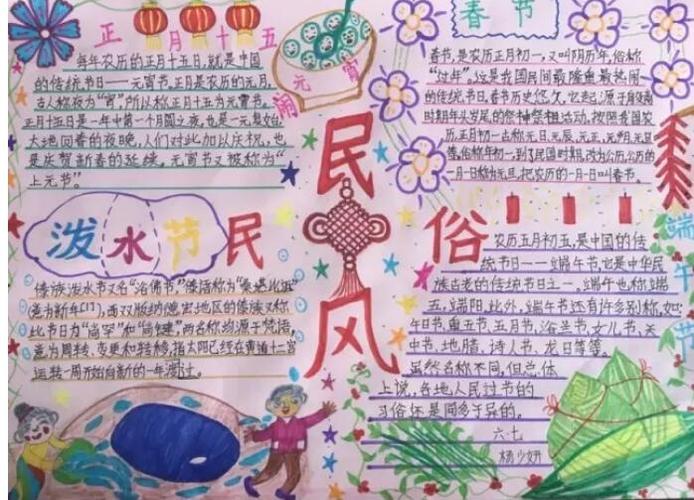 正月十五
每年农历的正月十五日,就是中国
的传统节日——元宵节。正月是农历的元月,
古人称夜为“宵”,所以称正月十五为元宵节。
正月十五日是一年中第一个月圆之夜,也是一元复始
大地回春的夜晚,人们对此加以庆祝,也
是庆贺新春的延续。元宵节又被称为“
上元节”。
闹元宵
春节
春节,是农历正月初一,又叫阴历年,俗称
“过年”。这是我国民间最隆重最热闹
的传统节日。春节历史悠久,它起源于殷商
时期年头岁尾的祭神祭祖活动。按照我国农
历,正月初一古称元日、元辰、元正、元朔、元旦
等,俗称年初一,到了民国时期,改为公历,公历的
一月一日称为元旦,把农历的一月一日叫春节。
民
风
民俗
泼水节
傣族泼水节又名“浴佛节”,傣语称为“桑堪比迈”
意为新年
西双版纳德宏地区的傣族又称
此节日为“尚罕”和“尚键”,两名称均源于梵语,
意为周转、变更和转移,指太阳已经在黄道十二宫
运转一周开始向新的一年过渡。
端午节
农历五月初五,是中国的传
统节日——端午节,它是中华民
族古老的传统节日之一。端午也称端
五,端阳。此外,端午节还有许多别称,如:
午日节、重五节、五月节、浴兰节、女儿节、天
中节、地腊、诗人节、龙日等等。
虽然名称不同,但总体
上说,各地人民过节的
习俗还是同多于异的。
六·七
杨少妍